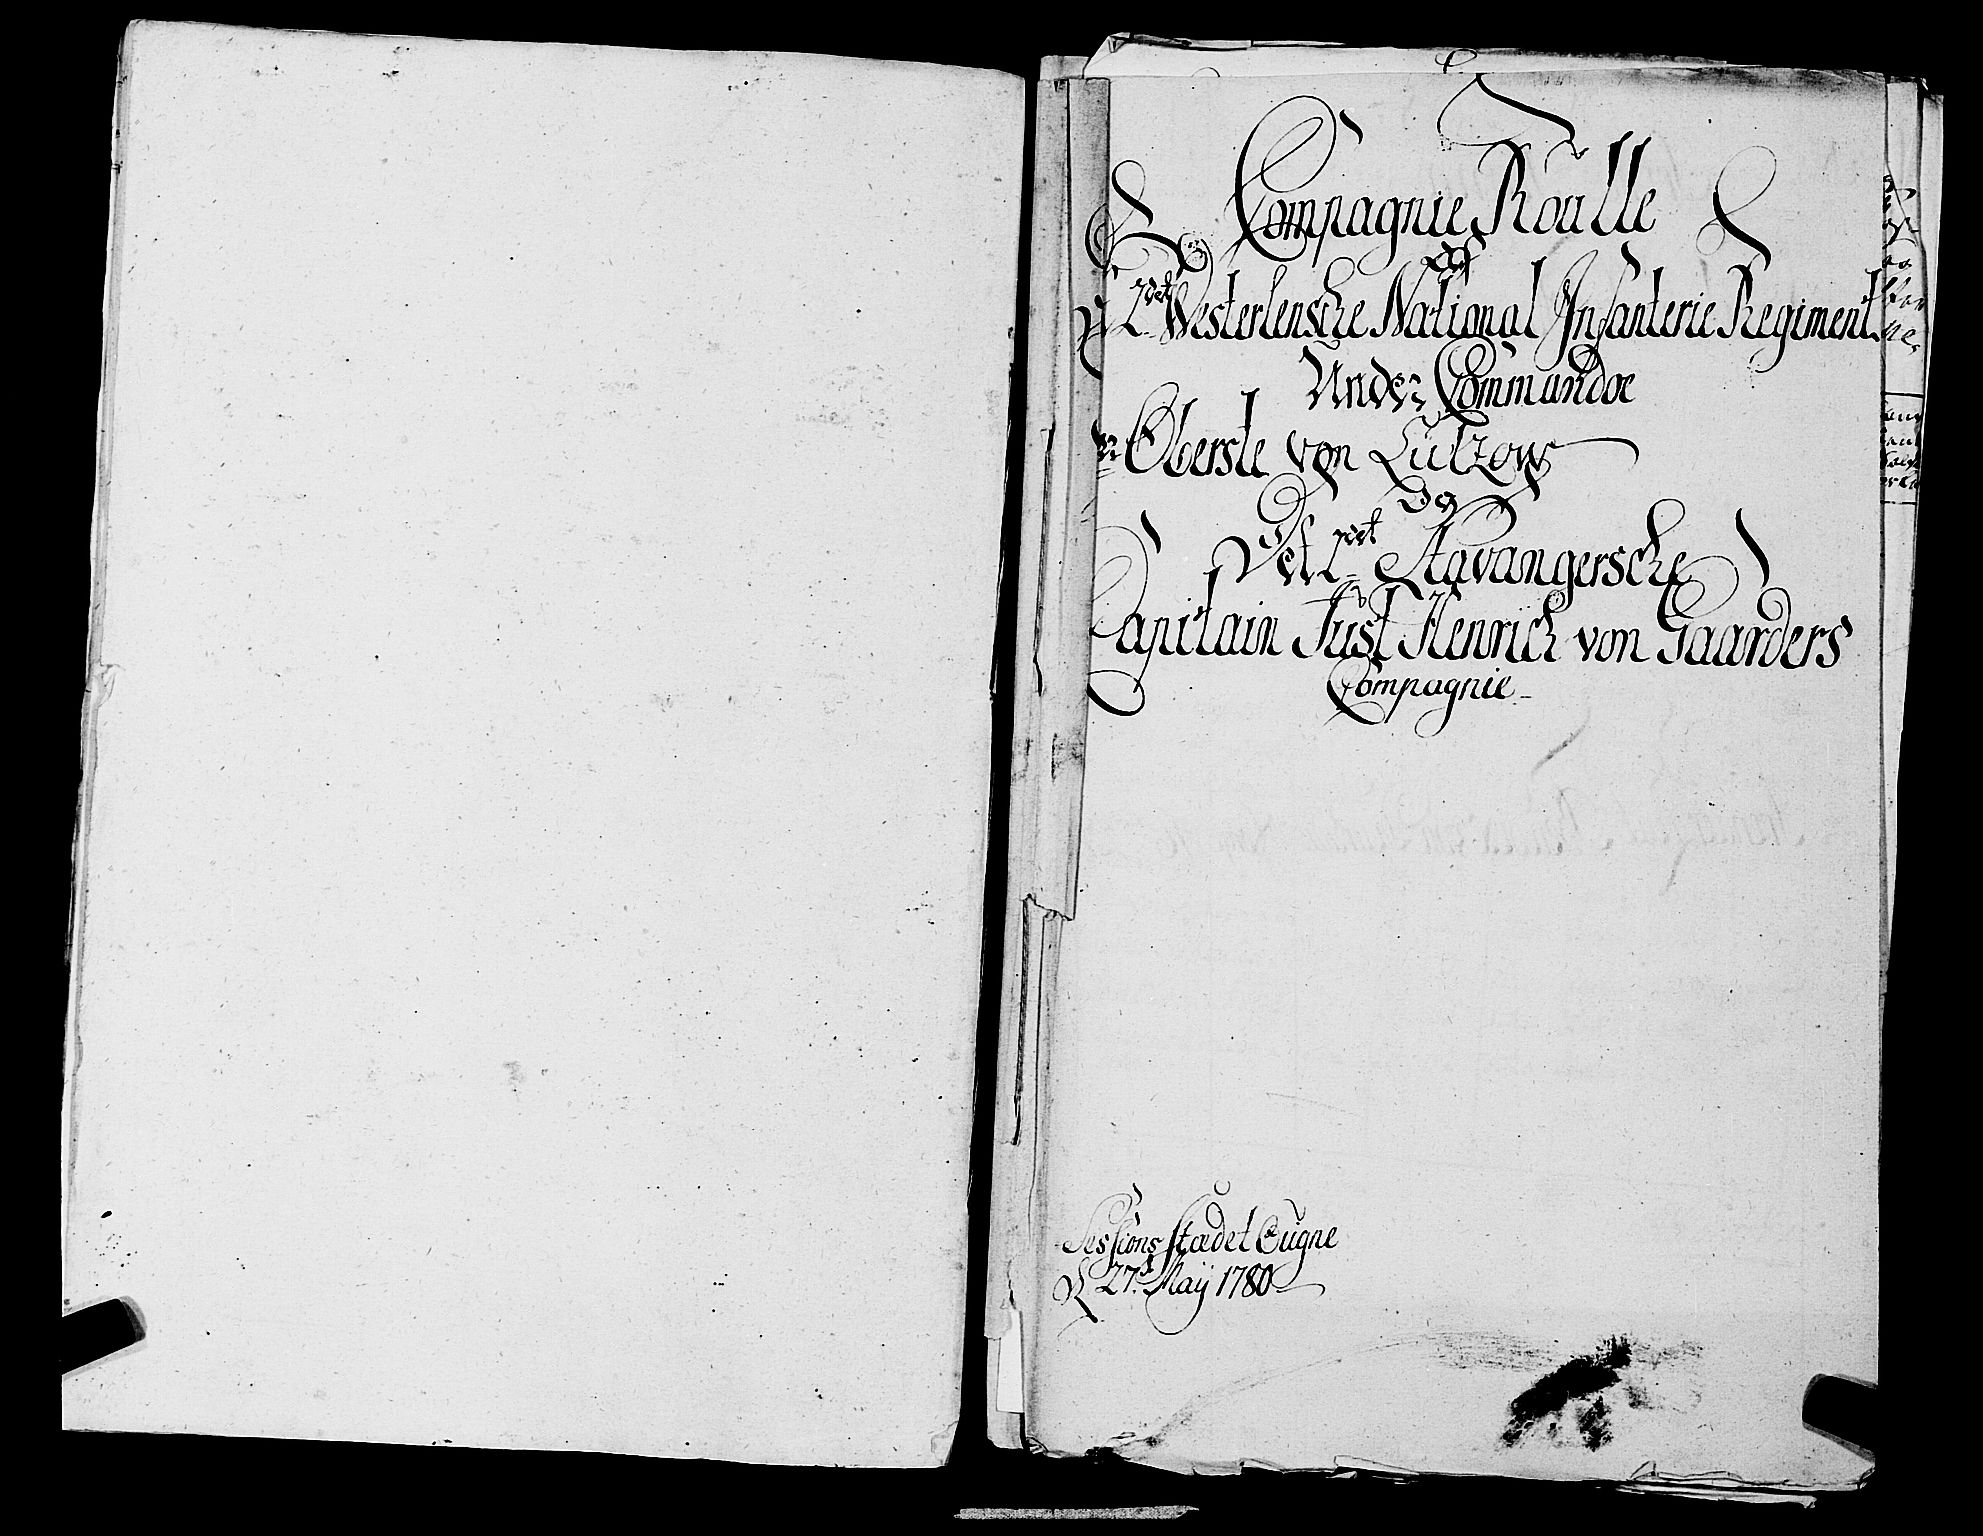 Compagnie Roulle
af
2det Westerlensche National Infanterie Regiment
Under Commandoe
Oberste von Lützow
Og
Det Stavangersche
Capitain Just Henrich von Gaarders
Compagnie
Sessions Stædet Øugne
d 27d Maÿ 1780